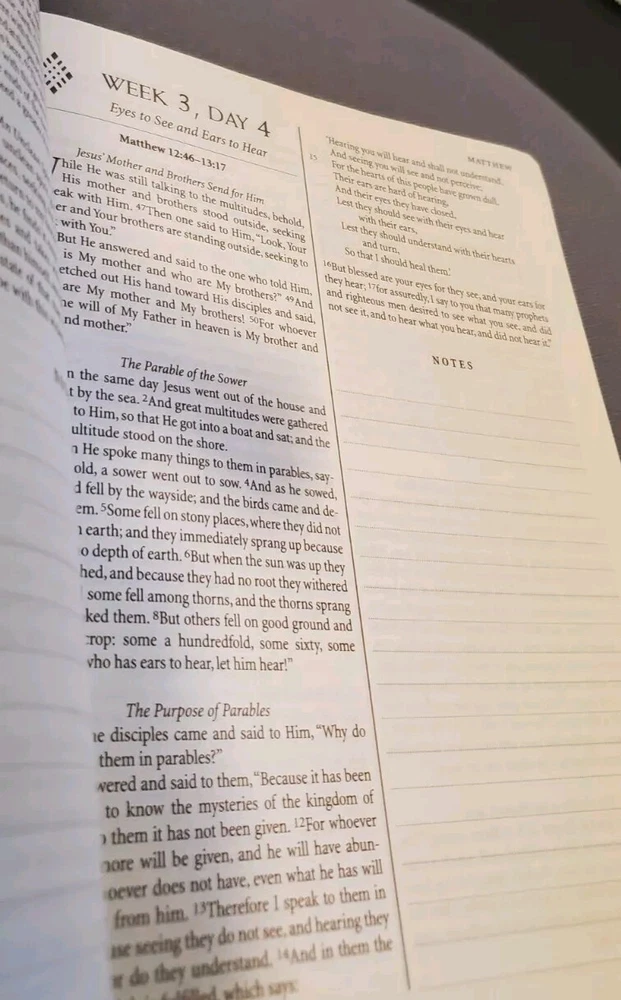 WEEK 3, DAY 4
Eyes to See and Ears to Hear
Matthew 12:46–13:17
Jesus' Mother and Brothers Send for Him
While He was still talking to the multitudes, behold,
His mother and brothers stood outside, seeking
eak with Him. 47Then one said to Him, "Look, Your
er and Your brothers are standing outside, seeking to
with You."
But He answered and said to the one who told Him,
is My mother and who are My brothers?" 49And
etched out His hand toward His disciples and said,
are My mother and My brothers! 50For whoever
he will of My Father in heaven is My brother and
nd mother."
The Parable of the Sower
n the same day Jesus went out of the house and
t by the sea. 2And great multitudes were gathered
to Him, so that He got into a boat and sat; and the
ultitude stood on the shore.
n He spoke many things to them in parables, say-
old, a sower went out to sow. 4And as he sowed,
d fell by the wayside; and the birds came and de-
em. 5Some fell on stony places, where they did not
n earth; and they immediately sprang up because
o depth of earth. 6But when the sun was up they
hed, and because they had no root they withered
some fell among thorns, and the thorns sprang
ked them. 8But others fell on good ground and
crop: some a hundredfold, some sixty, some
who has ears to hear, let him hear!"
The Purpose of Parables
he disciples came and said to Him, "Why do
them in parables?"
wered and said to them, "Because it has been
to know the mysteries of the kingdom of
them it has not been given. 12For whoever
more will be given, and he will have abun-
oever does not have, even what he has will
from him. 13Therefore I speak to them in
use seeing they do not see, and hearing they
or do they understand. 14And in them the
fulfilled, which says:
MATTHEW
'Hearing you will hear and shall not understand,
And seeing you will see and not perceive;
15 For the hearts of this people have grown dull.
Their ears are hard of hearing,
And their eyes they have closed,
Lest they should see with their eyes and hear
with their ears,
Lest they should understand with their hearts
and turn,
So that I should heal them.'
16But blessed are your eyes for they see, and your ears for
they hear; 17for assuredly, I say to you that many prophets
and righteous men desired to see what you see, and did
not see it, and to hear what you hear, and did not hear it."
NOTES